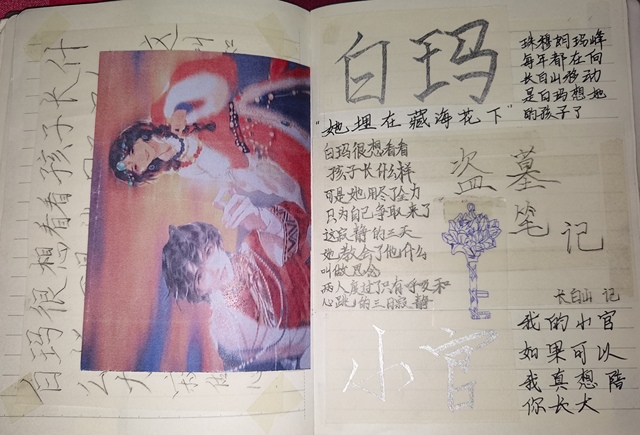 白玛很想看看孩子长什
白玛
珠穆朗玛峰
每年都在向
长白山移动
是白玛想她
的孩子了
"她埋在藏海花下"
白玛很想看看
孩子长什么样
可是她用尽了全力
只为自己争取来了
这寂静的三天
她教会了他什么
叫做思念
两人度过了只有呼吸和
心跳的三日寂静
盗墓
笔记
长白山 记
小官
我的小官
如果可以
我真想陪
你长大